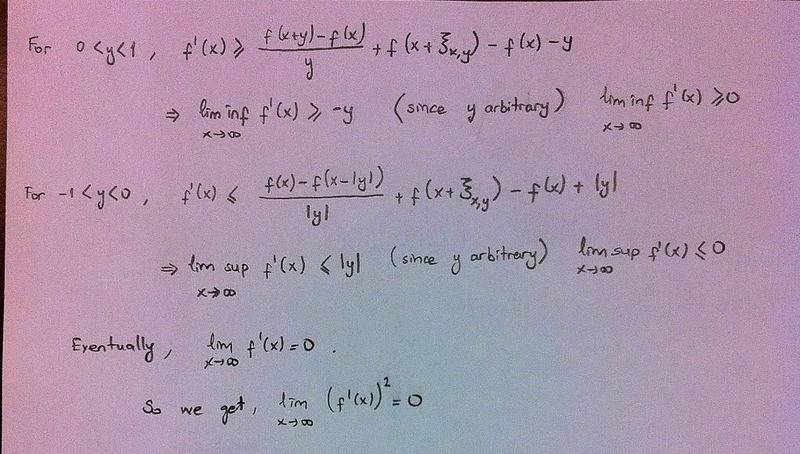 For 0<y<1, f'(x) ⩾ (f(x+y)-f(x))/y + f(x+ξ_{x,y}) - f(x) - y
⇒ lim inf_{x→∞} f'(x) ⩾ -y (since y arbitrary) lim inf_{x→∞} f'(x) ⩾ 0
For -1<y<0, f'(x) ⩽ (f(x)-f(x-|y|))/|y| + f(x+ξ_{x,y}) - f(x) + |y|
⇒ lim sup_{x→∞} f'(x) ⩽ |y| (since y arbitrary) lim sup_{x→∞} f'(x) ⩽ 0
Eventually, lim_{x→∞} f'(x) = 0 .
So we get, lim_{x→∞} (f'(x))² = 0